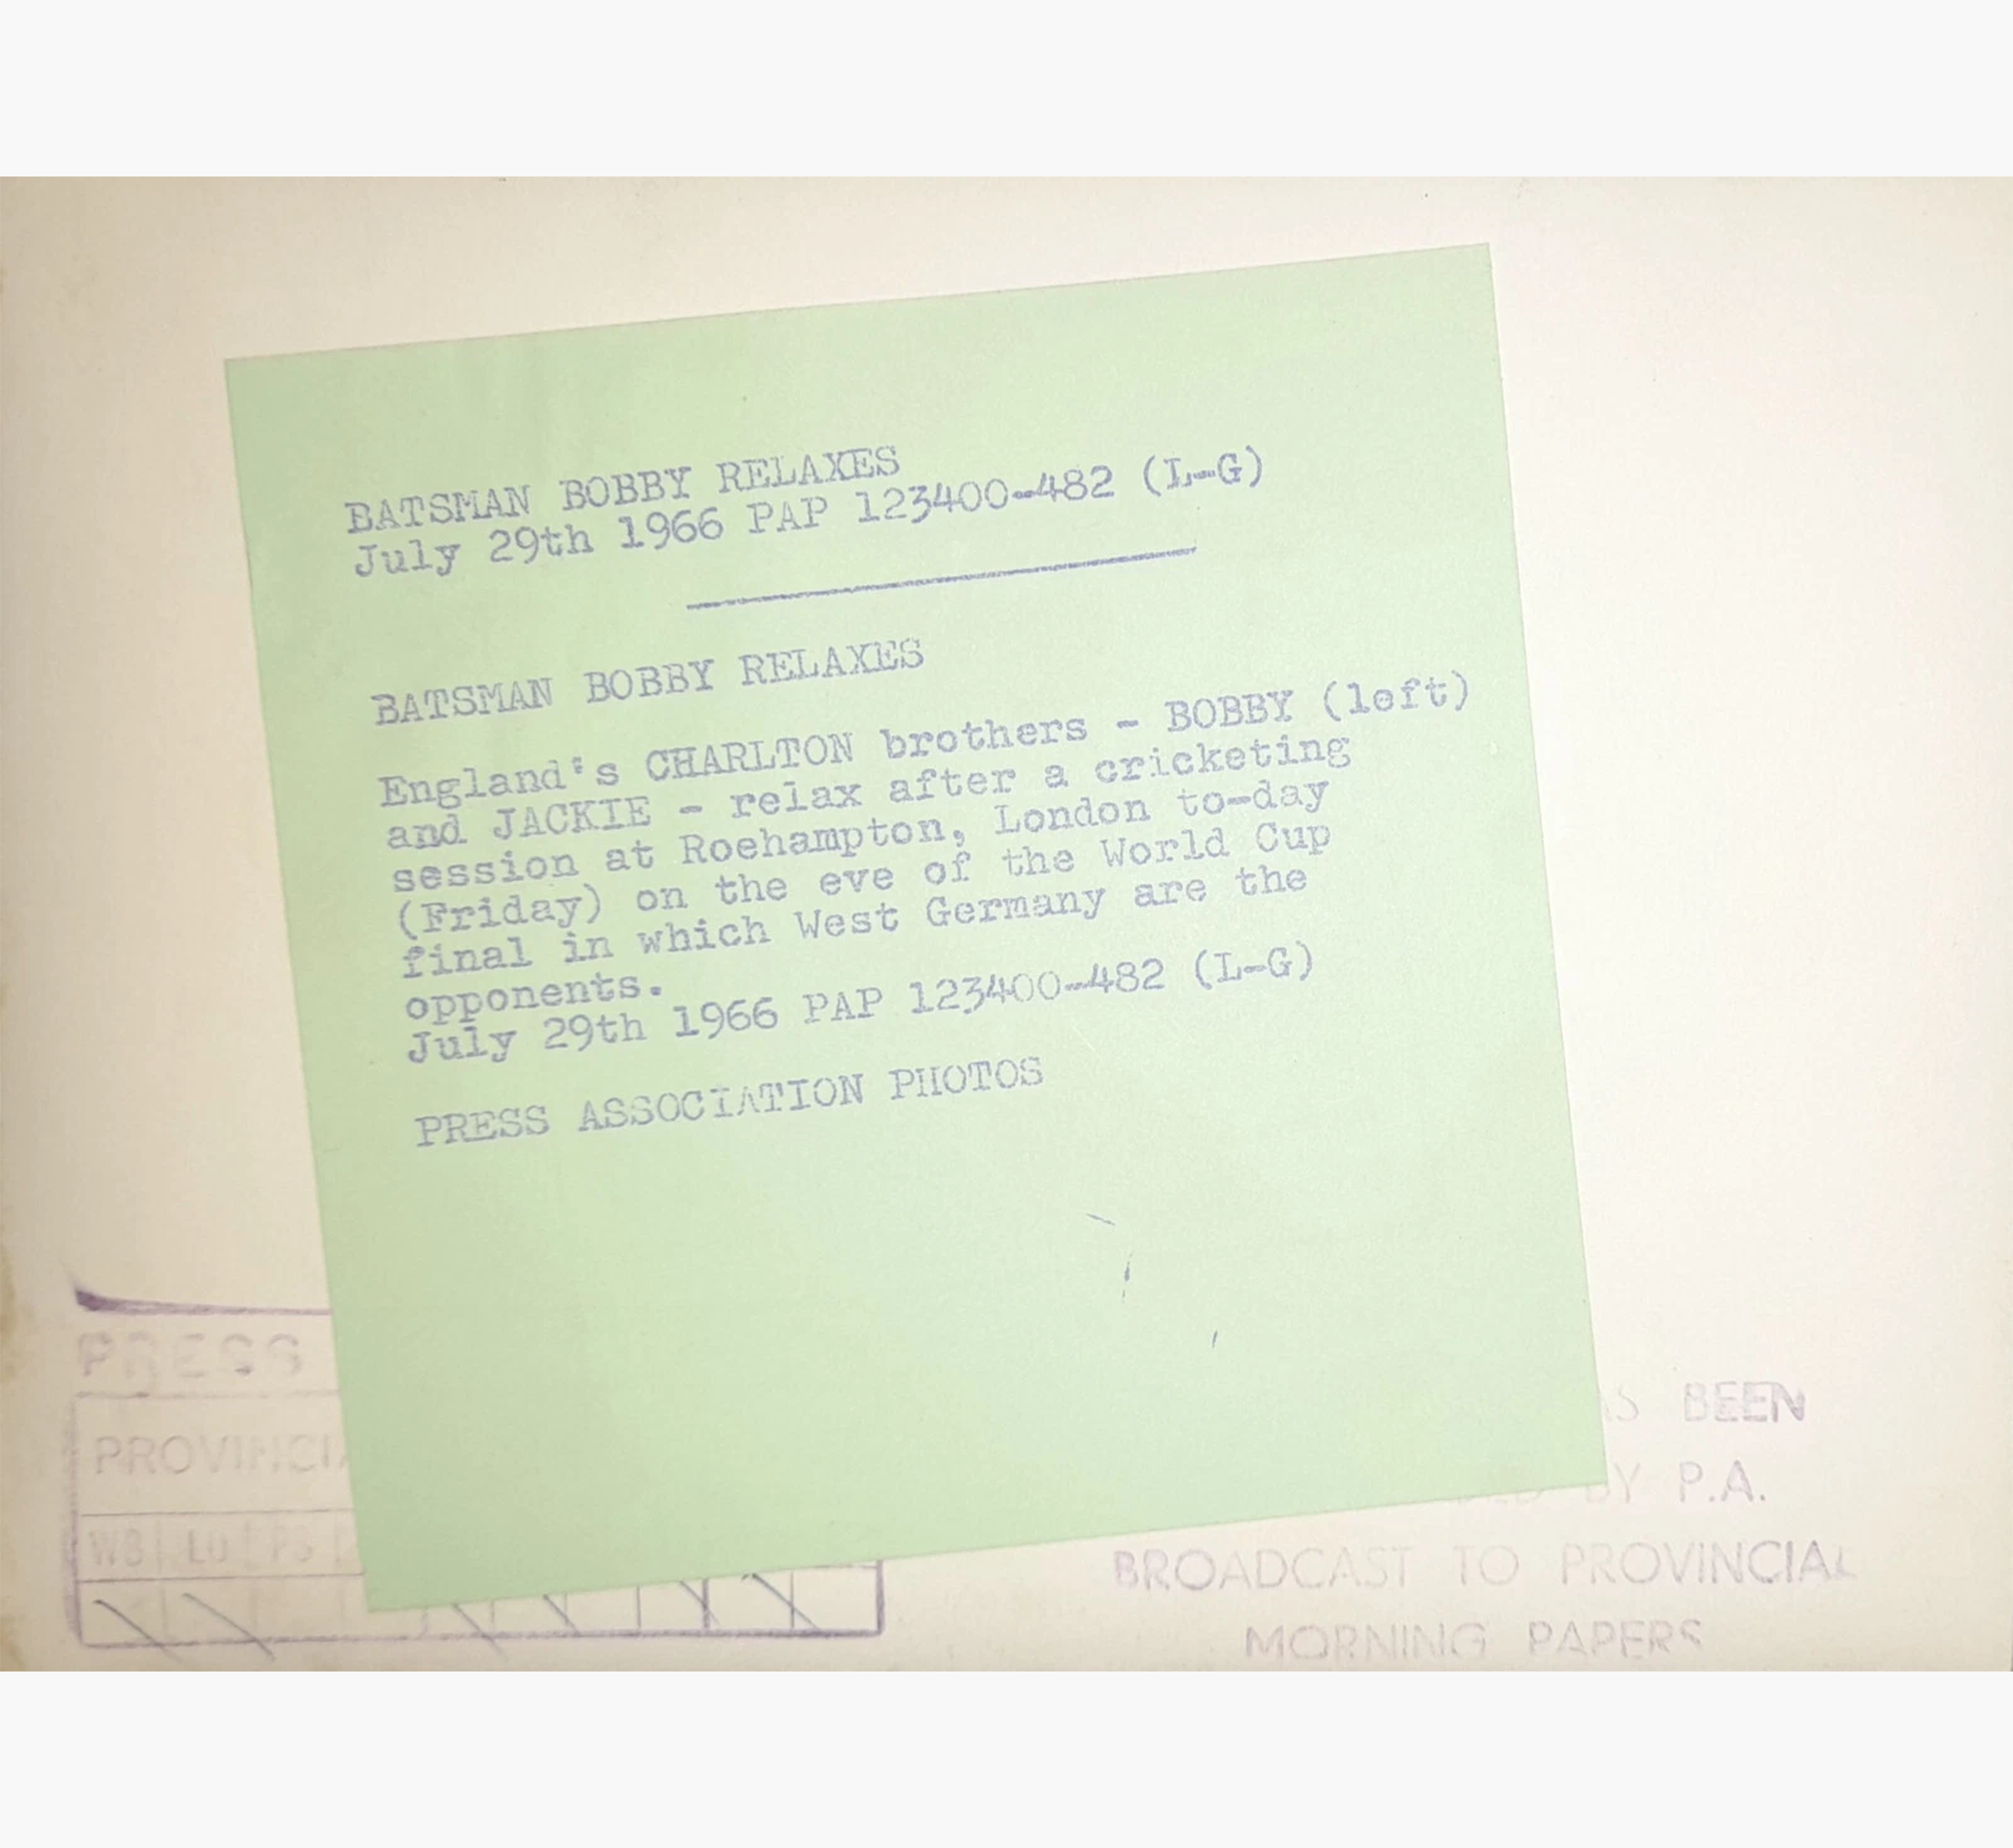 BATSMAN BOBBY RELAXES
July 29th 1966 PAP 123400-482 (L-G)
BATSMAN BOBBY RELAXES
England's CHARLTON brothers - BOBBY (left)
and JACKIE - relax after a cricketing
session at Roehampton, London to-day
(Friday) on the eve of the World Cup
final in which West Germany are the
opponents.
July 29th 1966 PAP 123400-482 (L-G)
PRESS ASSOCIATION PHOTOS
PRESS
WB LD PS
BEEN
BY P.A.
BROADCAST TO PROVINCIAL
MORNING PAPERS